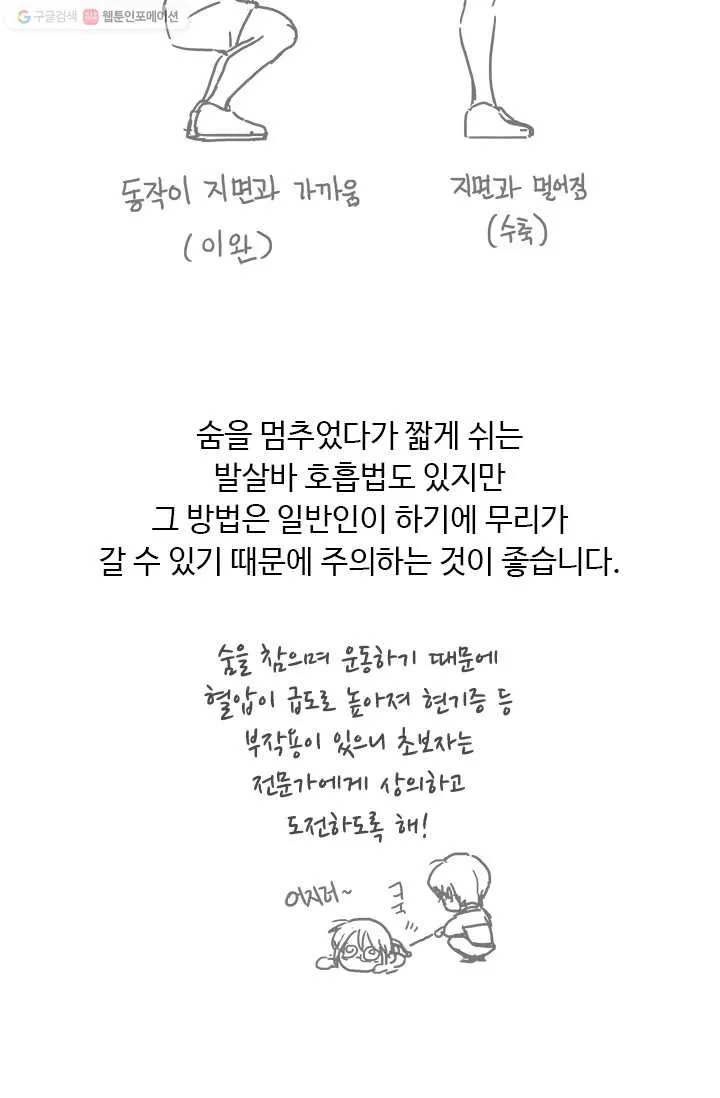 구글검색 웹툰인포메이션
동작이 지면과 가까움
(이완)
지면과 멀어짐
(수축)
숨을 멈추었다가 짧게 쉬는
발살바 호흡법도 있지만
그 방법은 일반인이 하기에 무리가
갈 수 있기 때문에 주의하는 것이 좋습니다.
숨을 참으며 운동하기 때문에
혈압이 급도로 높아져 현기증 등
부작용이 있으니 초보자는
전문가에게 상의하고
도전하도록 해!
어지러~
쿡